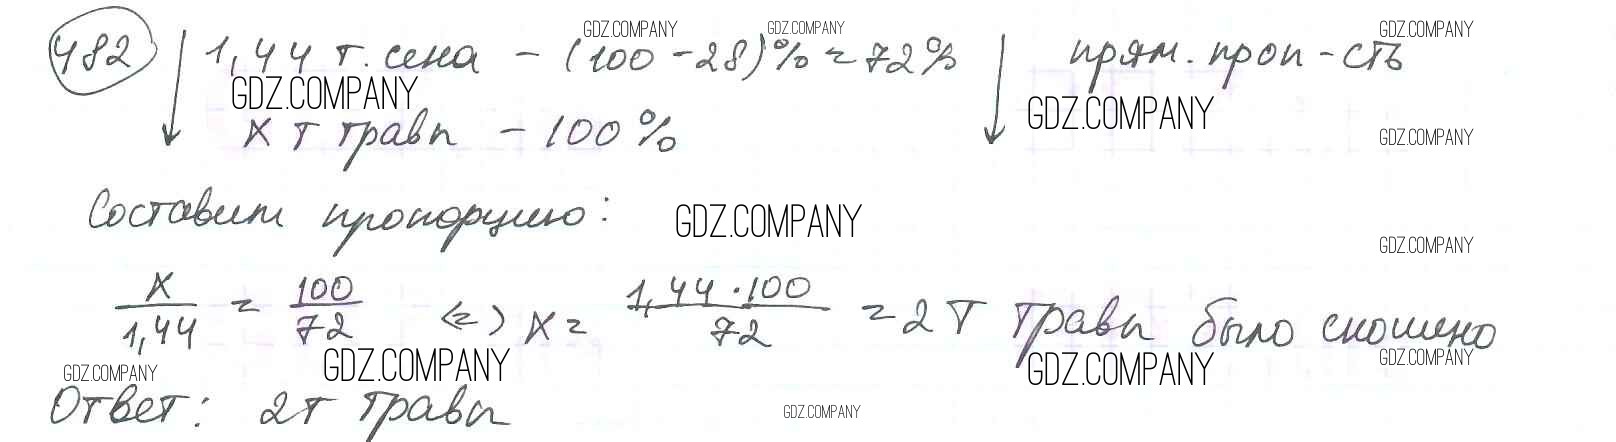 GDZ.COMPANY GDZ.COMPANY GDZ.COMPANY
482 1,44 т. сена - (100 - 28)% = 72% прям. проп-сть
GDZ.COMPANY GDZ.COMPANY
x т травы - 100% GDZ.COMPANY
Составим пропорцию: GDZ.COMPANY
GDZ.COMPANY
x/1,44 = 100/72 (=) x = 1,44 · 100/72 = 2 т травы было скошено
GDZ.COMPANY GDZ.COMPANY GDZ.COMPANY GDZ.COMPANY
Ответ: 2т травы GDZ.COMPANY